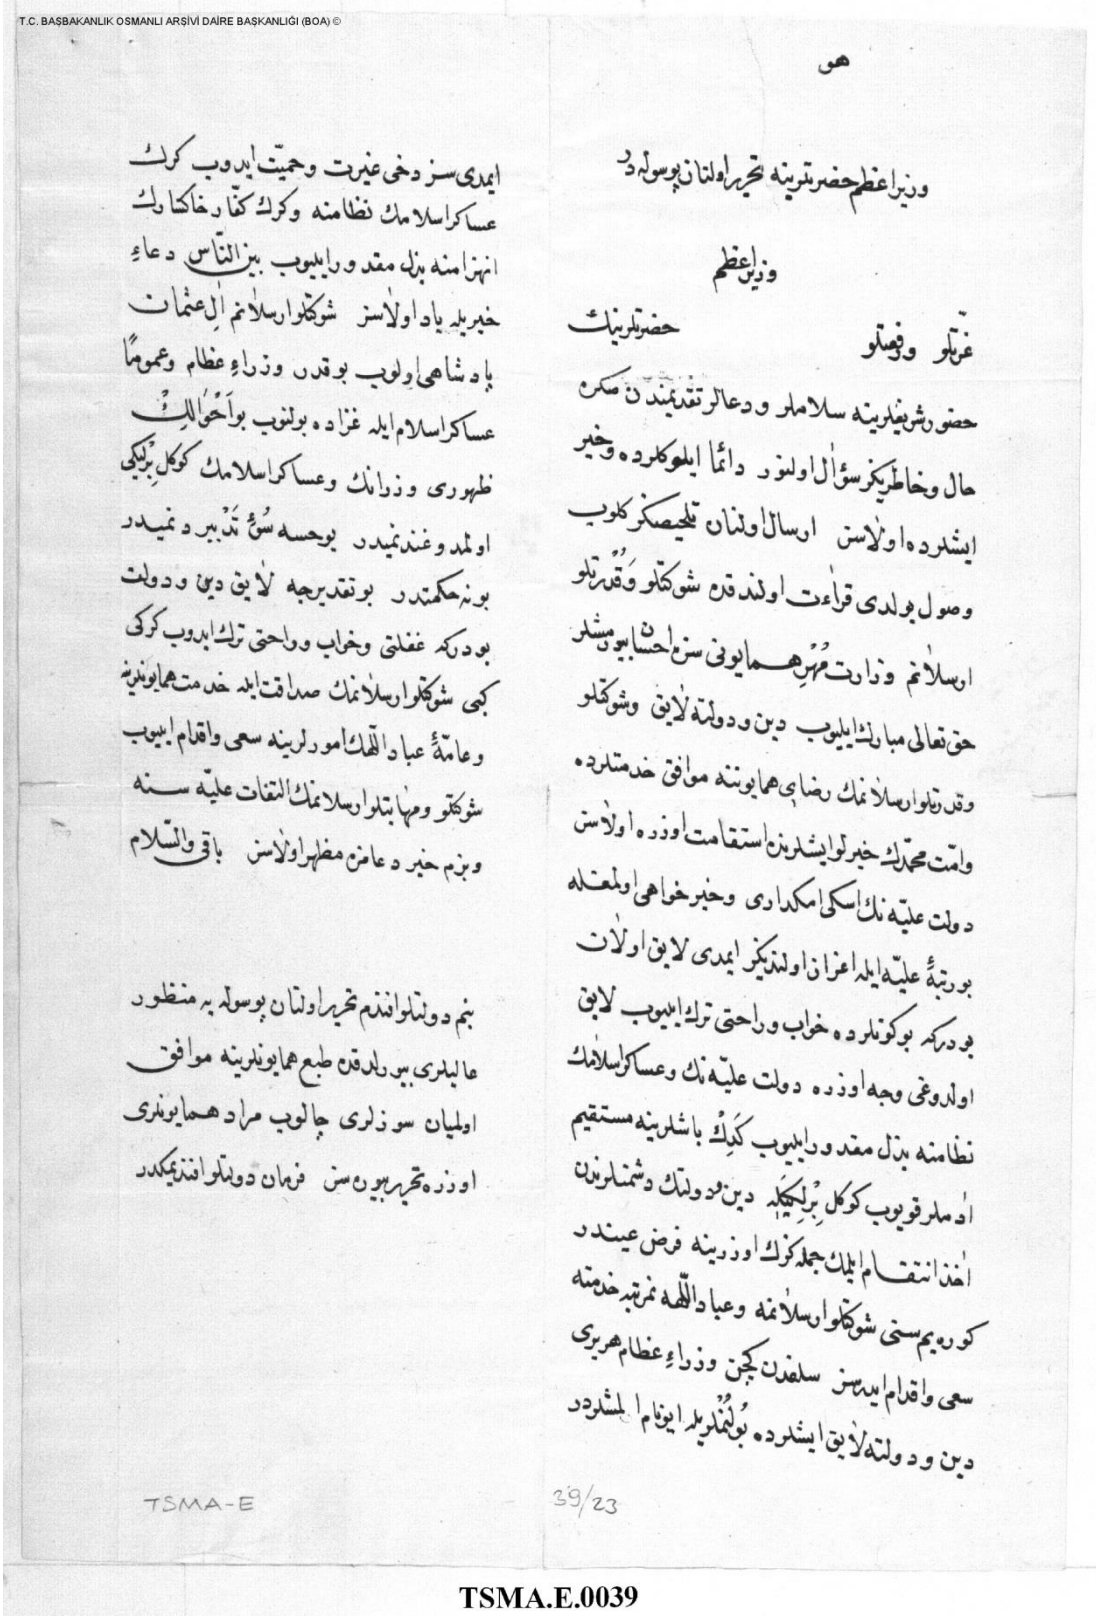 T.C. BAŞBAKANLIK OSMANLI ARŞİVİ DAİRE BAŞKANLIĞI (BOA) ©
هو
وزیراعظم حضرتلرینه تحریر اولنان پوسوله در
وزیراعظم
عزّتلو ورفعتلو حضرتلرینك
حضور شریفلرینه سلاملر ودعالر تقدیمندن صکره
حال وخاطریکز سؤال اولنور دائما ایلوکلرده وخیر
ایشلرده اولاسز ارسال اولنان تلخیصکز کلوب
وصول بولدی قرائت اولندقده شوکتلو وقدرتلو
ارسلانم وزارت مُهْرِ همایونی سزه احسان بیورمشلر
حق تعالی مبارك ایلیوب دین ودولته لایق وشوکتلو
وقدرتلو ارسلانمك رضای همایوننه موافق خدمتلرده
وامّت محمّدك خیرلو ایشلرنده استقامت اوزره اولاسز
دولت علیّه نك اسکی امکداری وخیر خواهی اولمغله
بو رتبهٔ علیّه ایله اعزاز اولندیکز ایمدی لایق اولان
بودرکه بوکونلرده خواب وراحتی ترك ایلیوب لایق
اولدوغی وجه اوزره دولت علیّه نك وعساکر اسلامك
نظامنه بذل مقدور ایلیوب کَدِك باشلرینه مستقیم
ادملر قویوب کوکل بِرْلِکیَله دین ودولتك دشمنلرندن
اخذ انتقام ایلمك جمله کزك اوزرینه فرض عیندر
کوره یم سنی شوکتلو ارسلانمه وعباد اللّهه نمرتبه خدمته
سعی واقدام ایدرسز سلفدن کچن وزراءِ عظام هربری
دین ودولته لایق ایشلرده بُولُنْمْلریله ایو نام المشلردر
ایمدی سز دخی غیرت وحمیّت ایدوب کرك
عساکر اسلامك نظامنه وکرك کفّار خاکسارك
انهزامنه بذل مقدور ایلیوب بین النّاس دعاءِ
خیریله یاد اولاسز شوکتلو ارسلانم اٰلِ عثمان
پادشاهی اولوب بوقدر وزراءِ عظام وعمومًا
عساکر اسلام ایله غزاده بولنوب بو اَحْوٰالِكْ
ظهوری وزرانك وعساکر اسلامك کوکل بِرْلِکی
اولمدوغندنمیدر یوخسه سُوءِ تَدْبیر دنمیدر
بونه حکمتدر بو تقدیرجه لایق دین ودولت
بودرکه غفلتی وخواب وراحتی ترك ایدوب کرکی
کبی شوکتلو ارسلانمك صداقت ایله خدمت همایونلرینه
وعامّهٔ عباد اللّهك امورلرینه سعی واقدام ایلیوب
شوکتلو ومهابتلو ارسلانمك التفات علیّه سنه
وبزم خیر دعامزه مظهر اولاسز باقی والسّلام
بنم دولتلو افندم تحریر اولنان پوسوله یه منظور
عالیلری بیورلدقده طبع همایونلرینه موافق
اولمیان سوزلری چالوب مراد همایونلری
اوزره تحریر بیوره سز فرمان دولتلو افندیمکدر
TSMA-E
39/23
TSMA.E.0039